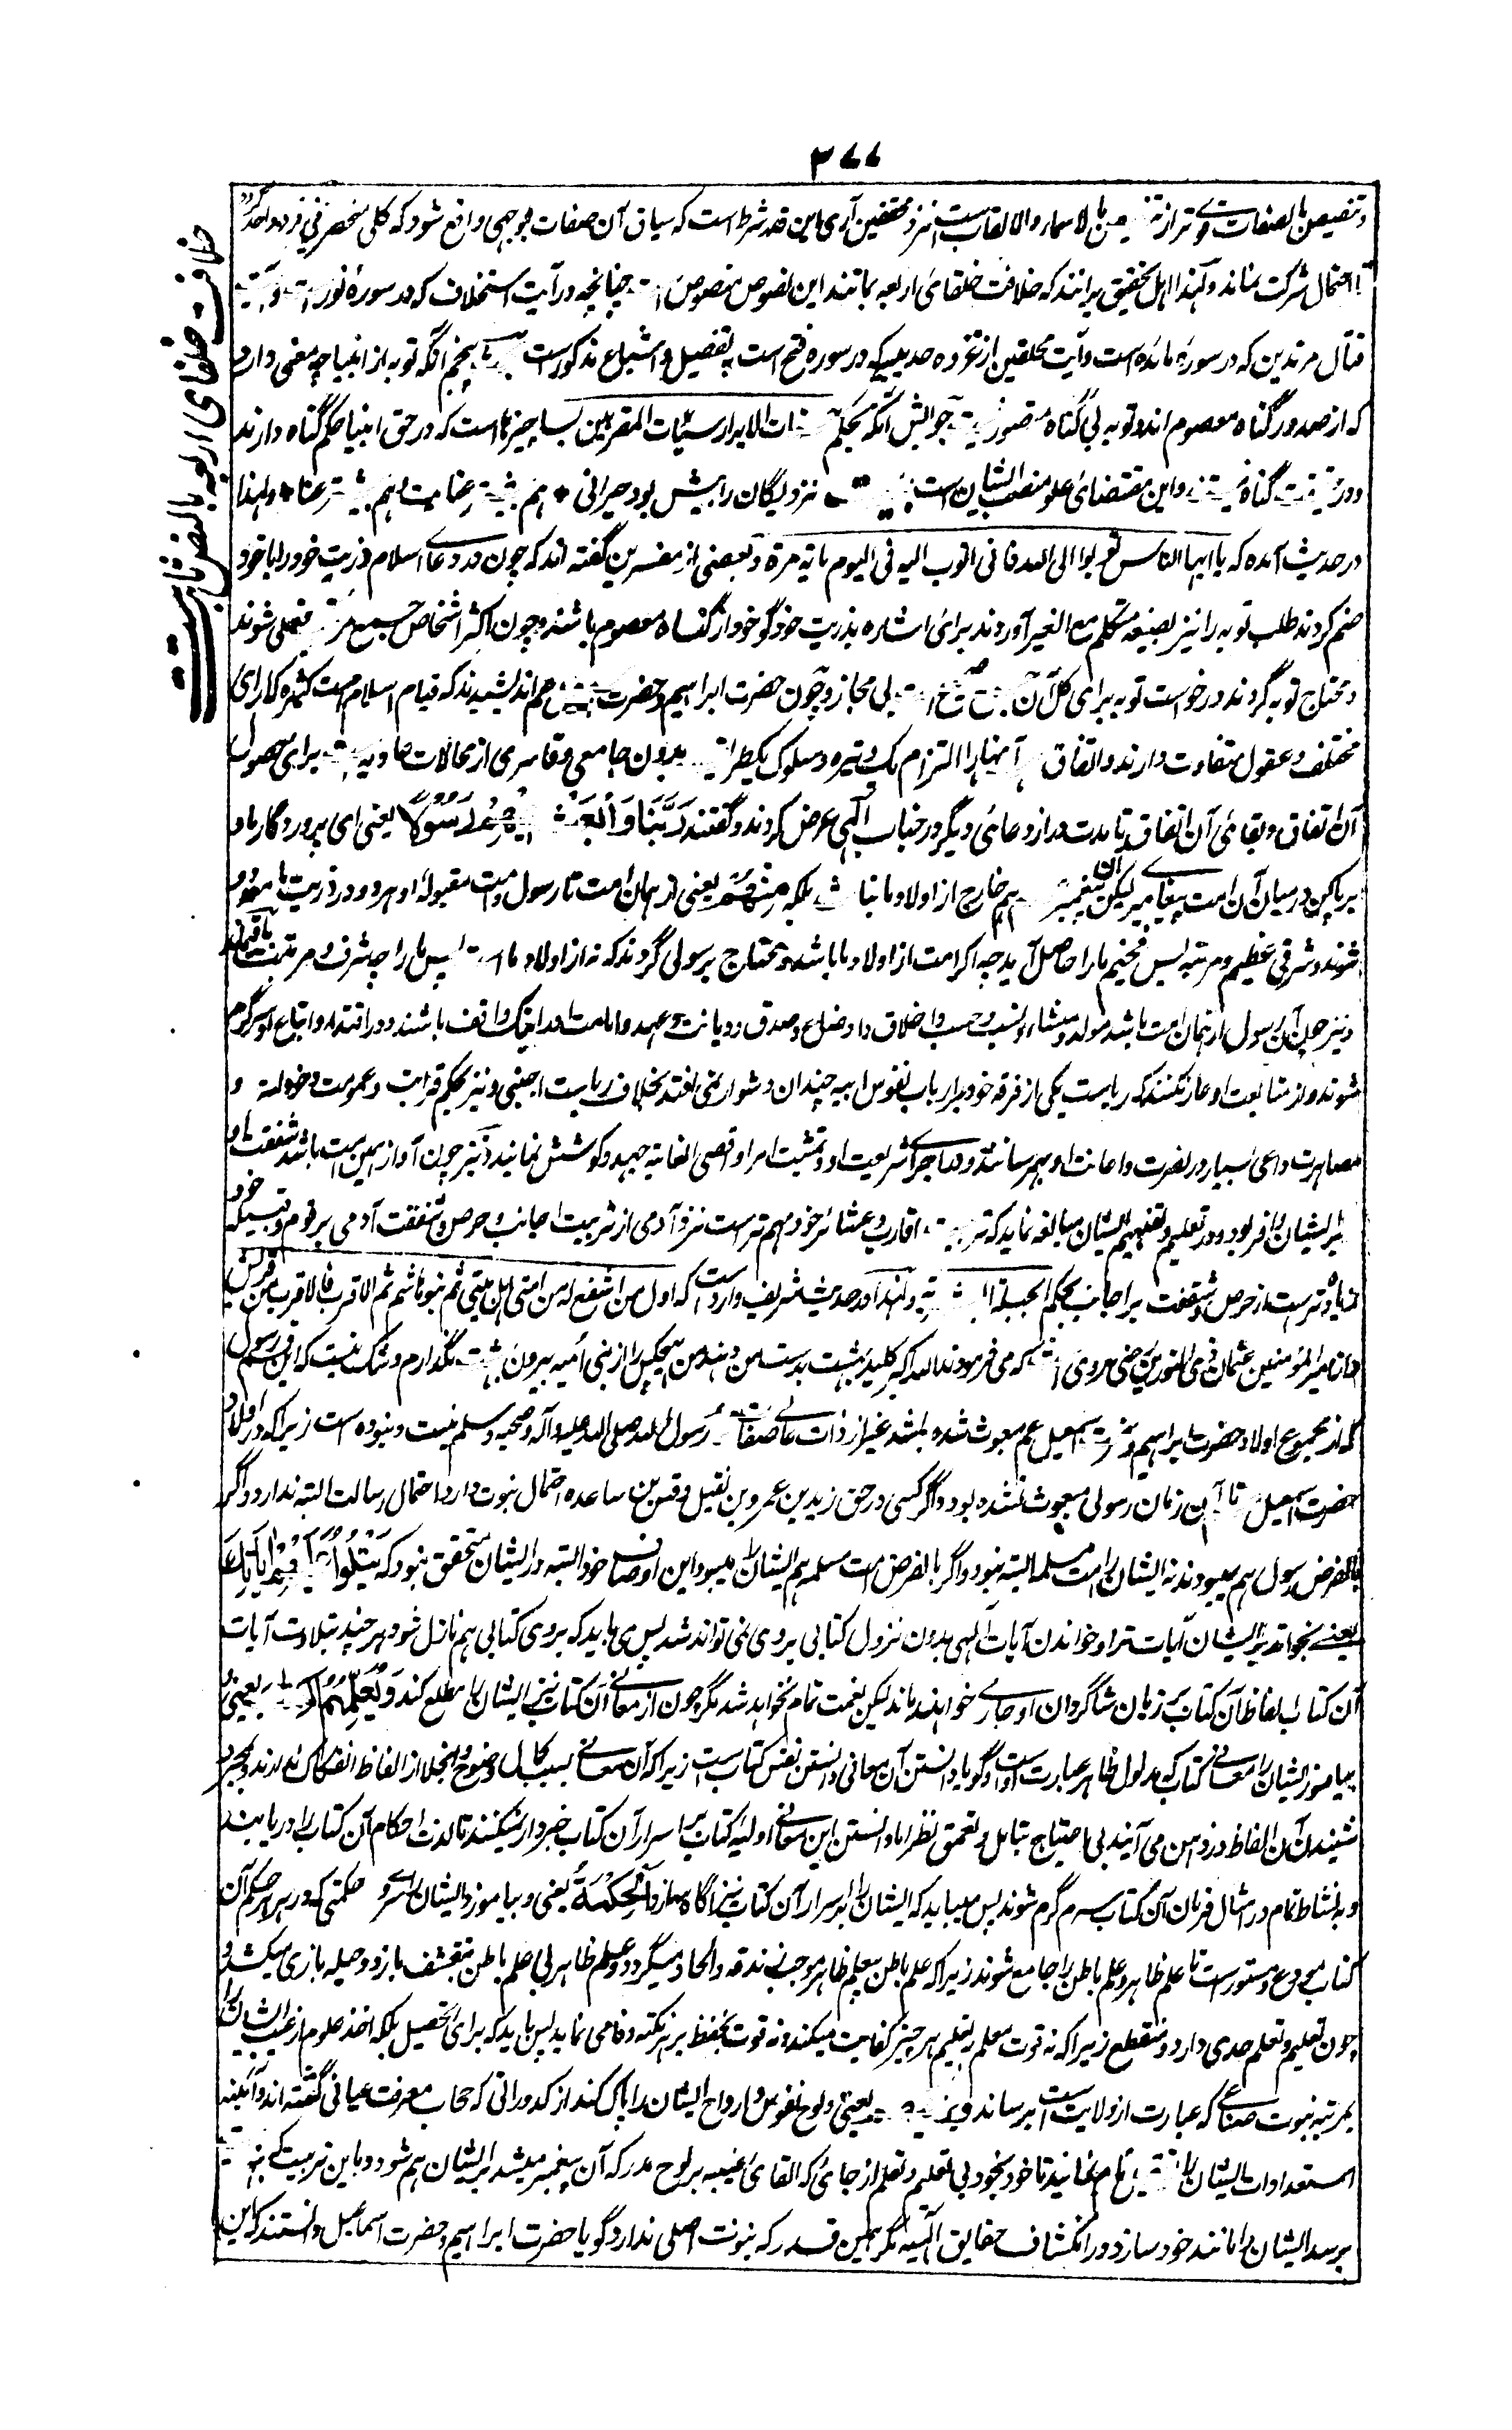 ۳۷۷
و تنصیص بالصفات قوی تر از تنصیص بالاسماء والالقاب است نزد محققین آری این قدر شرط است که سیاق آن صفات بوجهی واقع شود که کلی منحصر فی فرد واحد گردد
تا احتمال شرکت نماند و لهذا اهل تحقیق برانند که خلافت خلفای اربعه بمانند این نصوص منصوص است چنانچه در آیت استخلاف که در سورهٔ نور است و آیت
قتال مرتدین که در سورهٔ مائده است و آیت مخلفین از غزوه حدیبیه که در سوره فتح است بتفصیل و اشباع مذکور است پنجم آنکه توبه از انبیا چه معنی دارد
که از صدور گناه معصوم اند و توبه بی گناه متصور نیست جوابش آنکه بحکم حسنات الابرار سیئات المقربین بسا چیزها است که در حق انبیا حکم گناه دارند
و در حقیقت گناه نیستند و این مقتضای علو منصب ایشان است بیت نزدیکان را بیش بود حیرانی * هم بیشتر عنایت و هم بیشتر عنا * و لهذا
در حدیث آمده که یا ایها الناس توبوا الی الله فانی اتوب الیه فی الیوم مایة مرة و بعضی از مفسرین گفته اند که چون در دعای اسلام ذریت خود را با خود
ضم کردند طلب توبه را نیز بصیغه متکلم مع الغیر آوردند برای اشاره بذریت خود گو خود از گناه معصوم باشند و چون اکثر اشخاص جمیع مرتکب فعلی شوند
و محتاج توبه گردند درخواست توبه برای کل آن جمع صحیح است بی مجاز و چون حضرت ابراهیم و حضرت اسمعیل هم اندیشیدند که قیام اسلام امت کثیره که آرای
مختلف و عقول متفاوت دارند و اتفاق آنها را التزام یک وتیره و سلوک یک طریقه بدون جامعی و قاسری از محالات عادیه است برای حصول
آن اتفاق و بقای آن اتفاق تا مدت دراز دعائی دیگر در جناب الهی عرض کردند و گفتند رَبَّنَا وَابْعَثْ فِیْهِمْ رَسُوْلًا یعنی ای پروردگار ما و
برپا کن در میان آن امت پیغامبر لیکن آن پیغمبر هم خارج از اولاد ما نباشد بلکه مِنْهُمْ یعنی از همان امت تا رسول و امت مقبوله او هر دو در ذریت ما معدود
شوند و شرفی عظیم و مرتبه بس فخیم ما را حاصل آید چه اگر امت از اولاد ما باشد و محتاج برسولی گردند که نه از اولاد ما است پس ما را چه شرف و مرتبت باقیماند
و نیز چون آن رسول از همان امت باشد مولد و منشاء و نسب و حسب و اخلاق و اوضاع و صدق و دیانت و عهد و امانت او را نیک واقف باشند و در اقتدا و اتباع او سرگرم
شوند و از متابعت او عار نکنند که ریاست یکی از فرقه خود بر ارباب نفوس ابیه چندان دشوار نمی افتد بخلاف ریاست اجنبی و نیز بحکم قرابت و عمومت و خولت و
مصاهرت داعی بسیار در نصرت و اعانت او بهم رسانند و در اجرای شریعت او و تمشیت امر او اقصی الغایة جهد و کوشش نمایند و نیز چون او از همین امت باشد شفقت او
بر ایشان وافر بود و در تعلیم و تفهیم ایشان مبالغه نماید که تربیت اقارب و عشائر خود مهم تر است نزد آدمی از تربیت اجانب و حرص و شفقت آدمی بر قوم و قبیله خود
زیاده تر است از حرص و شفقت بر اجانب بحکم الجبلة البشریة و لهذا در حدیث شریف وارد است که اول من اشفع له من امتی اهل بیتی ثم بنو هاشم ثم الاقرب فالاقرب من قریش
و از امیرالمؤمنین عثمان ذی النورین رضی مروی است که می فرمودند والله اگر کلید بهشت بدست من دهند من هیچکس را از بنی امیه بیرون بهشت نگذارم و شک نیست که این قسم رسول
که از مجموع اولاد حضرت ابراهیم و حضرت اسمعیل عم مبعوث شده باشد غیر از ذات عالی صفات رسول الله صلی الله علیه وآله وصحبه وسلم نیست و نبوده است زیرا که در اولاد
حضرت اسمعیل تا آن زمان رسولی مبعوث نشده بود و اگر کسی در حق زید بن عمرو بن نفیل و قس بن ساعده احتمال نبوت دارد احتمال رسالت البته ندارد و اگر
بالفرض رسول هم میبودند ایشان را امت مسلمه البته نبود و اگر بالفرض امت مسلمه هم ایشان را میبود این اوصاف خود البته در ایشان متحقق نبود که یَتْلُوْا عَلَیْهِمْ اٰیَاتِکَ
یعنی بخواند بر ایشان آیات ترا و خواندن آیات الهی بدون نزول کتابی بر وی نمی تواند شد پس می باید که بر وی کتابی هم نازل شود و هر چند بتلاوت آیات
آن کتاب الفاظ آن کتاب بر زبان شاگردان او جاری خواهند ماند لیکن نعمت تمام نخواهد شد مگر چون از معانی آن کتاب نیز ایشان را مطلع کند وَیُعَلِّمُهُمُ الْکِتَابَ یعنی و
بیاموزد ایشان را معانی کتاب که مدلول ظاهر عبارت اوست و گویا دانستن آن معانی دانستن نفس کتاب است زیرا که آن معانی بسبب کمال وضوح و انجلا از الفاظ انفکاک ندارند و بمجرد
شنیدن آن الفاظ در ذهن می آیند بی احتیاج بتامل و تعمق نظر اما دانستن این معانی اولیهٔ کتاب بر اسرار آن کتاب خبردار نمیکند تا لذت احکام آن کتاب را دریابند
و بنشاط تمام در امتثال فرمان آن کتاب سرگرم شوند پس میباید که ایشان را بر اسرار آن کتاب نیز آگاه سازد وَالْحِکْمَةَ یعنی و بیاموزد ایشان را سر و حکمتی که در هر حکم آن
کتاب مودع و مستور است تا علم ظاهر و علم باطن را جامع شوند زیرا که علم باطن بی علم ظاهر موجب زندقه و الحاد میگردد و علم ظاهر بی علم باطن بتقشف بارد و حیله بازی میکشد و
چون تعلیم و تعلم حدی دارد و منقطع زیرا که نه قوت معلم بتعلیم هر چیز کفایت میکند و نه قوت تحفظ بر هر نکته وفا می نماید پس باید که برای تحصیل ملکه اخذ علوم از غیب ایشان را
بمرتبه نبوت صناعی که عبارت از ولایت است برساند وَیُزَکِّیْهِمْ یعنی و لوح نفوس و ارواح ایشان را پاک کند از کدوراتی که حجاب معرفت عیانی گشته اند و آئینه
استعدادات ایشان را تام نماید تا خود بخود بی تعلیم و تعلم از جائی که القای غیبیه بر لوح مدرکه آن پیغمبر میشد بر ایشان هم شود و باین تربیت که
برسد ایشان را مانند خود سازد در انکشاف حقایق الهیه مگر همین قدر که نبوت اصلی ندارد گویا حضرت ابراهیم و حضرت اسماعیل دانستند که این
خلافت خلفای اربعه بالنص ثابت است